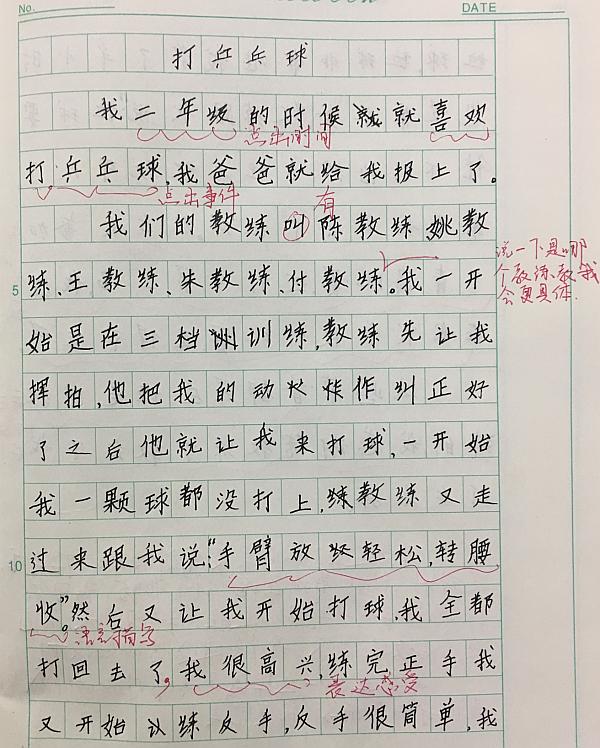 No.
DATE
打乒乓球
我二年级的时候就就喜欢
点出时间
打乒乓球,我爸爸就给我报上了。
点出事件
有
我们的教练叫陈教练姚教
练、王教练、朱教练、付教练。我一开
说一下是哪
个教练教我
会更具体.
5
始是在三档训训练,教练先让我
挥拍,他把我的动作纠正好
了之后他就让我来打球,一开始
我一颗球都没打上,练教练又走
10
过来跟我说:“手臂放终轻松,转腰
收”。然后又让我开始打球,我全都
语言描写
打回去了,我很高兴,练完正手我
表达感受
又开始认练反手,反手很简单,我